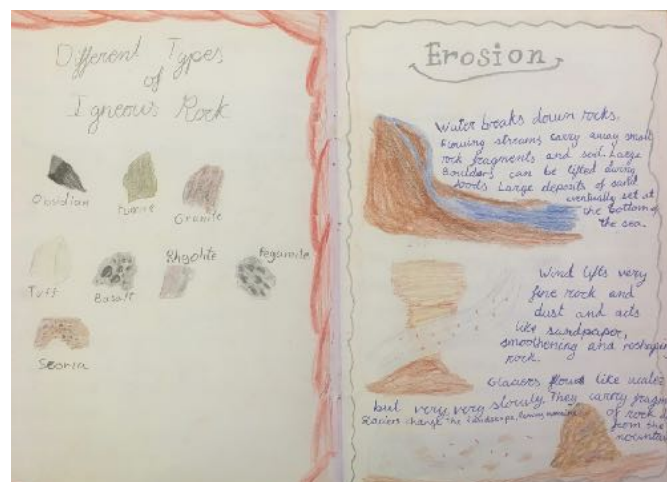 Different Types
of
Igneous Rock
Obsidian
Pumice
Granite
Tuff
Basalt
Rhyolite
Pegamite
Scoria
Erosion
Water breaks down rocks.
Flowing streams carry away small
rock fragments and soil. Large
Boulders can be lifted during
floods Large deposits of sand
eventually set at
the bottom of
the sea.
Wind lifts very
fine rock and
dust and acts
like sandpaper,
smoothening and reshapin
rock.
Glaciers flows like water
but very, very slowly. They carry fragm
of rock
Glaciers change the landscape,
from the
mountai